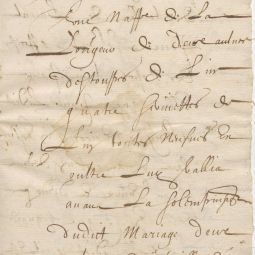 Une Nappe de La
Longeur de deux aulnes
d'estouppes de Lin
quatre serviettes de
Lin toutes Neufves En
oultre Luy Bailha
avant La solempnisa
dudict Mariage deux